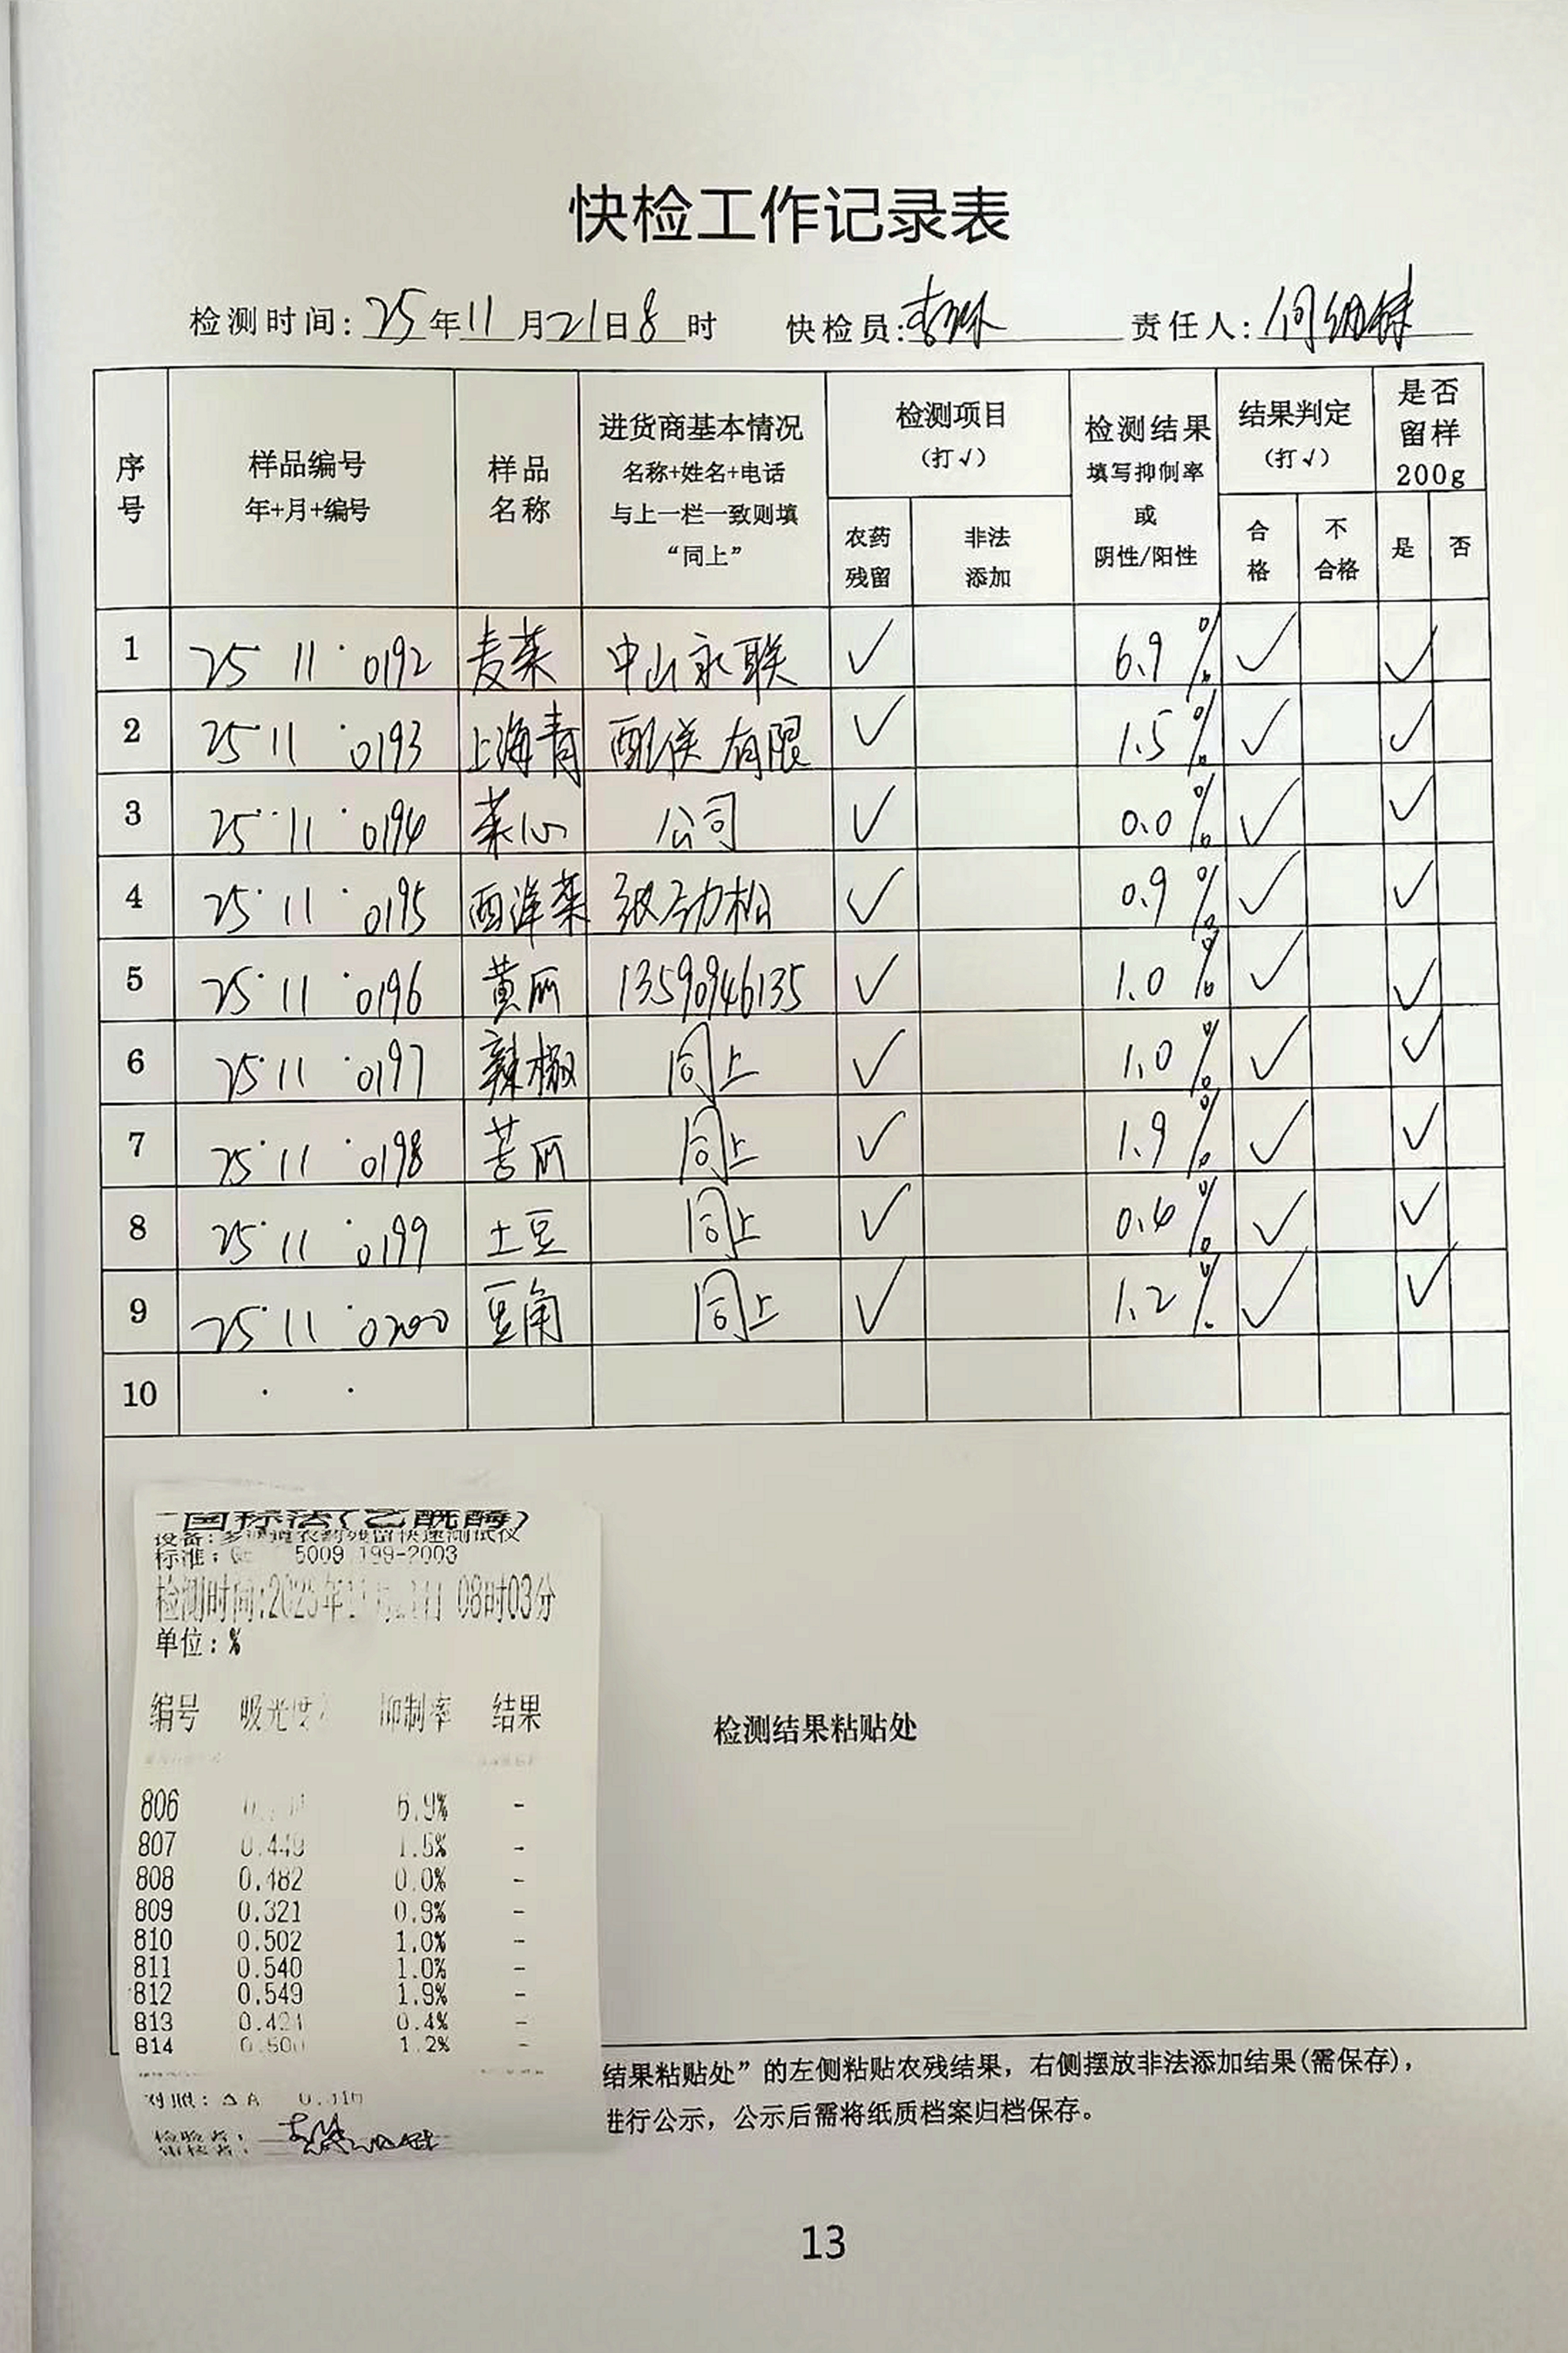 快检工作记录表
检测时间: 25年11月21日8时 快检员: 责任人:
序号 样品编号 年+月+编号 样品名称 进货商基本情况 名称+姓名+电话 与上一栏一致则填“同上” 检测项目 (打√) 农药残留 非法添加 检测结果 填写抑制率 或 阴性/阳性 结果判定 (打√) 合格 不合格 是否留样200g 是 否
1 25 11 · 0192 麦菜 中山永联 ✓ 6.9% ✓ ✓
2 25 11 · 0193 上海青 配送有限 ✓ 1.5% ✓ ✓
3 25 · 11 · 0194 菜心 公司 ✓ 0.0% ✓ ✓
4 25 · 11 · 0195 西洋菜 劲松 ✓ 0.9% ✓ ✓
5 25 · 11 · 0196 黄瓜 13590946135 ✓ 1.0% ✓ ✓
6 25 · 11 · 0197 辣椒 同上 ✓ 1.0% ✓ ✓
7 25 · 11 · 0198 苦瓜 同上 ✓ 1.9% ✓ ✓
8 25 · 11 · 0199 土豆 同上 ✓ 0.4% ✓ ✓
9 25 · 11 · 0200 豆角 同上 ✓ 1.2% ✓ ✓
10 · ·
国标法(乙酰酶)
设备:多通道农药残留快速测试仪
标准: 5009 199-2003
检测时间:2025年11月21日 08时03分
单位:%
编号 吸光度 抑制率 结果
检测结果粘贴处
806 6.9% -
807 0.449 1.5% -
808 0.482 0.0% -
809 0.321 0.9% -
810 0.502 1.0% -
811 0.540 1.0% -
812 0.549 1.9% -
813 0.421 0.4% -
814 0.500 1.2% -
对照:ΔA
检验者:
审核者:
结果粘贴处”的左侧粘贴农残结果，右侧摆放非法添加结果(需保存)，
进行公示，公示后需将纸质档案归档保存。
13